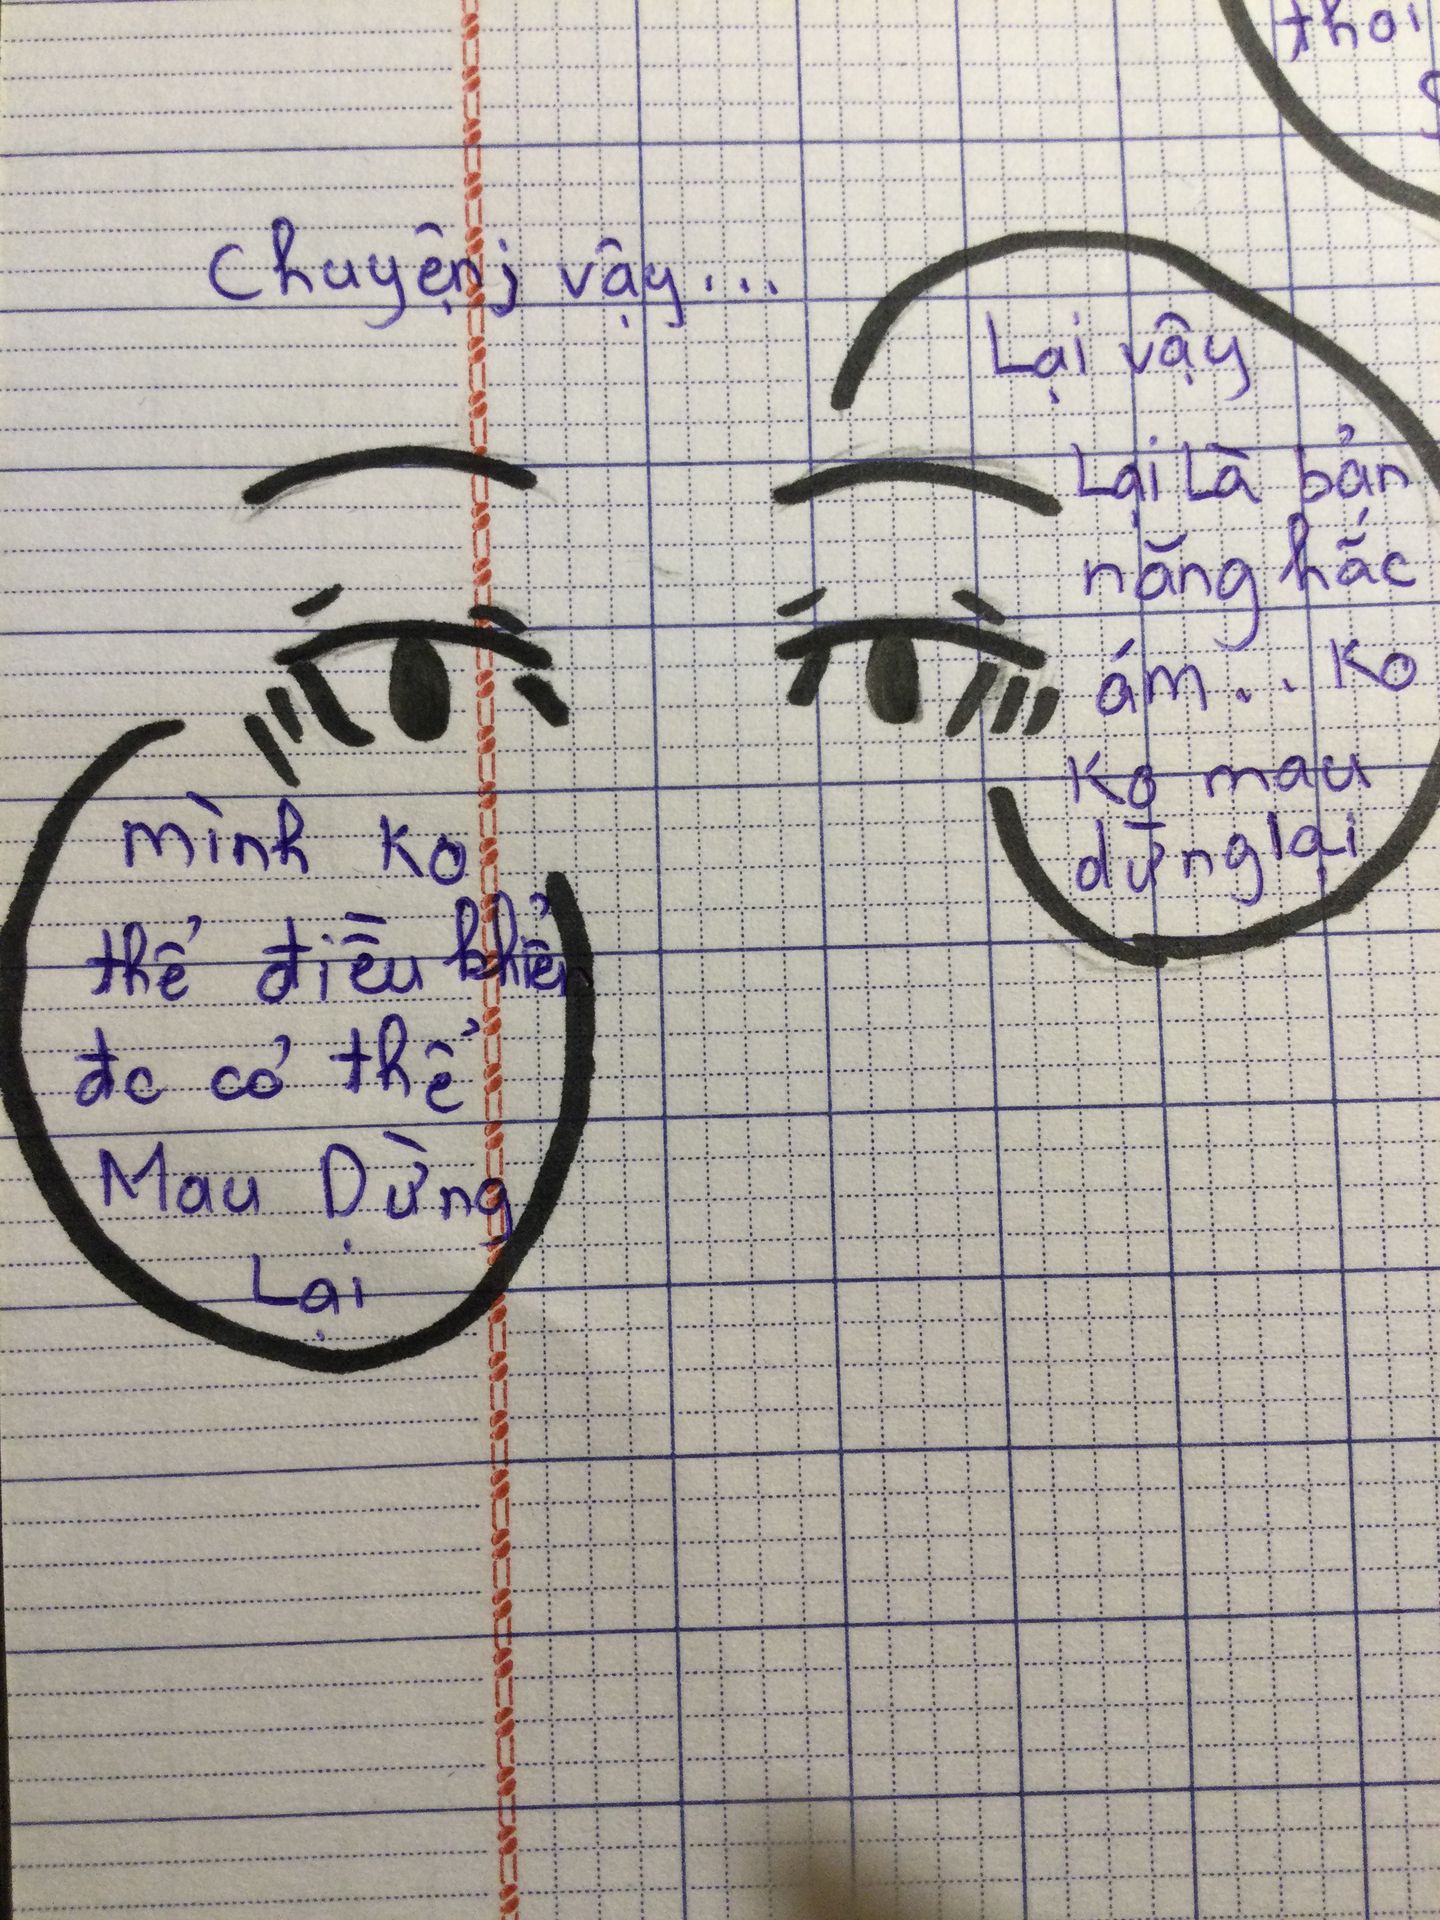 thoi
Chuyệnj vậy...
Lại vậy
Lại Là bản
năng hắc
ám... Ko
Ko mau
dừng lại
mình ko
thể điều khiển
đc cơ thể
Mau Dừng
Lại